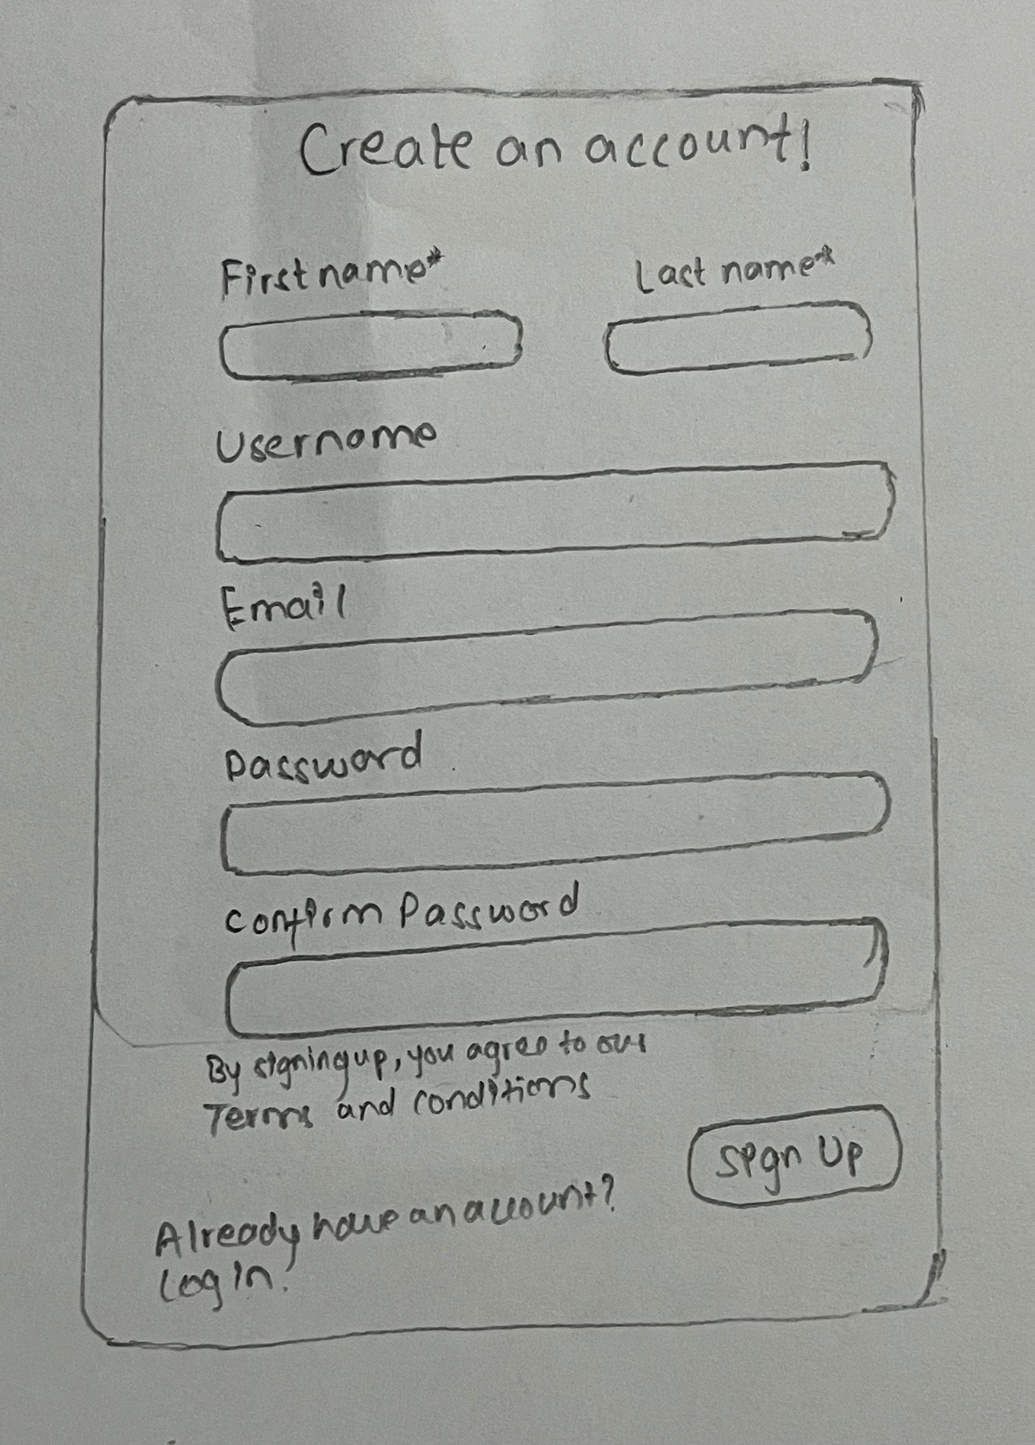 Create an account!
First name* Last name*
Username
Email
Password
Confirm Password
By signing up, you agree to our
Terms and conditions
Sign Up
Already have an account?
Log in.